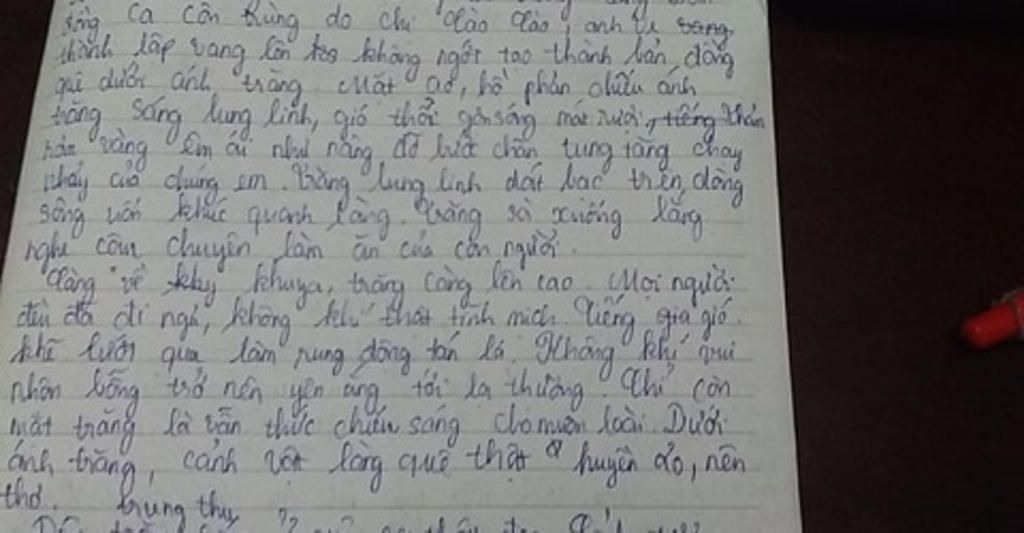 ca côn trùng do chị Dào Dào, anh Ve vang
thành lập vang lên không ngớt tạo thành bản đồng
quê dưới ánh trăng. Mặt ao, hồ phản chiếu ánh
trăng sáng lung linh, gió thổi gợn sóng mát rượi, tiếng
vàng êm ái như nâng đỡ bước chân tung tăng chạy
nhảy của chúng em. Trăng lung linh dát bạc trên dòng
sông uốn khúc quanh làng. Trăng sà xuống lắng
nghe câu chuyện làm ăn của con người.
Càng về khuya, trăng càng lên cao. Mọi người
đều đã đi ngủ, không khí thật tĩnh mịch. Tiếng gió
khẽ lướt qua làm rung động tán lá. Không khí
nhộn bỗng trở nên yên ắng tới lạ thường. Chỉ còn
mặt trăng là vẫn thức chiếu sáng cho muôn loài. Dưới
ánh trăng, cảnh vật làng quê thật huyền ảo, nên
thơ. trung thu